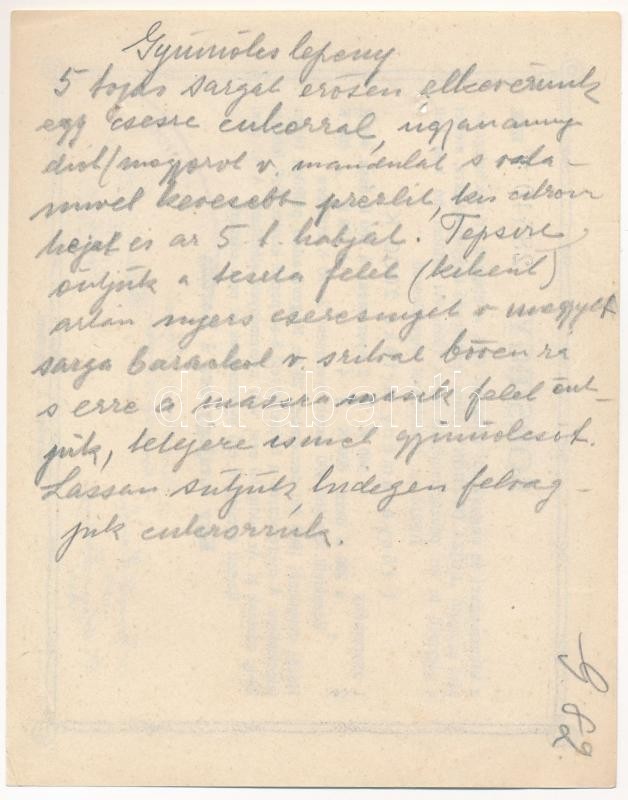 Gyümölcs lepény
5 tojás sárgát erősen elkeverünk
egy csesze cukorral, ugyanannyi
diót/mogyorot v. mandulát s vala-
mivel kevesebb prezlit, kis citrom
hejat és az 5 t. habját. Tepsire
öntjük a tészta felét (kikent)
aztán nyers cseresnyét v meggyet
sárga barackot v. szilvát bőven rá
s erre a massza másik felét önt-
jük, tetejére ismét gyümölcsöt.
Lassan sütjük, hidegen felvag-
juk cukrozzuk.
darabanth
G 82